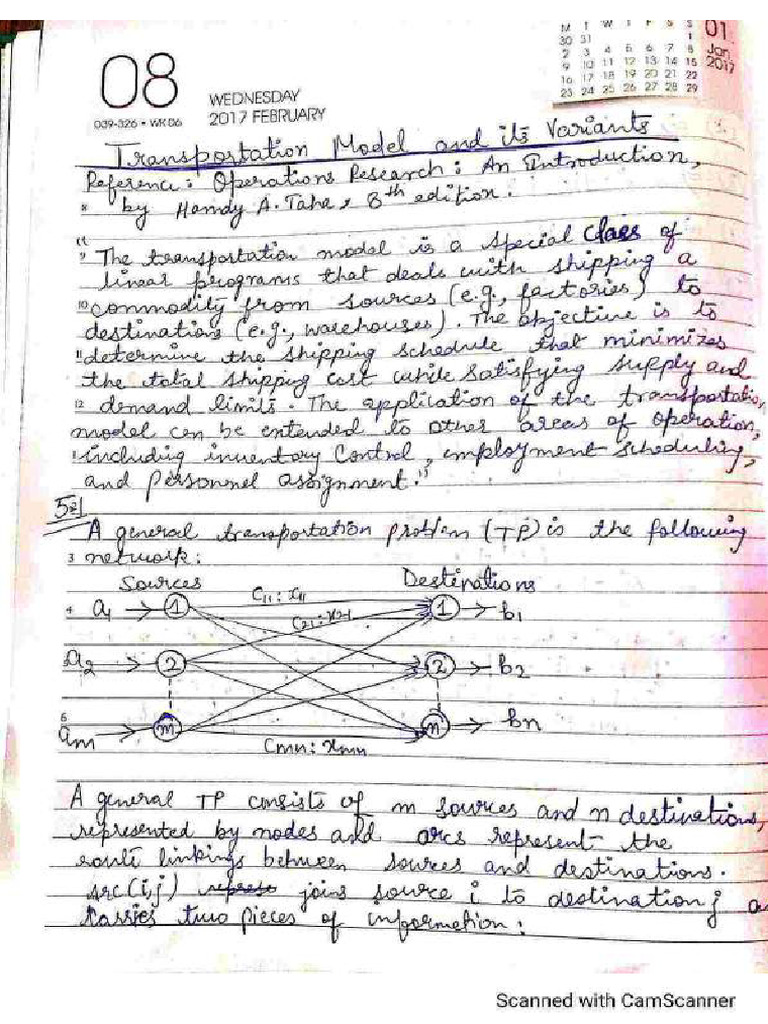 M T W T F S S
30 31 1
2 3 4 5 6 7 8
9 10 11 12 13 14 15
16 17 18 19 20 21 22
23 24 25 26 27 28 29
01
Jan
2017
08
WEDNESDAY
039-326 • WK 06
2017 FEBRUARY
Transportation Model and its Variants
Reference: Operations Research: An Introduction,
8 by Hamdy A. Taha, 8th edition.
9 "The transportation model is a special class of
linear programs that deals with shipping a
10 commodity from sources (e.g., factories) to
destinations (e.g., warehouses). The objective is to
11 determine the shipping schedule that minimizes
the total shipping cost while satisfying supply and
12 demand limits. The application of the transportation
model can be extended to other areas of operation,
1 including inventory control, employment scheduling,
and personnel assignment."
5.1
A general transportation problem (TP) is the following
3 network:
Sources Destinations
4 a1 → 1 c11 : x11 1 → b1
c21 : x21
5 a2 → 2 2 → b2
6 am → m cmn : xmn n → bn
A general TP consists of m sources and n destinations,
represented by nodes and arcs represent the
route linkings between sources and destinations.
arc (i,j) joins source i to destination j a
carries two pieces of information:
Scanned with CamScanner